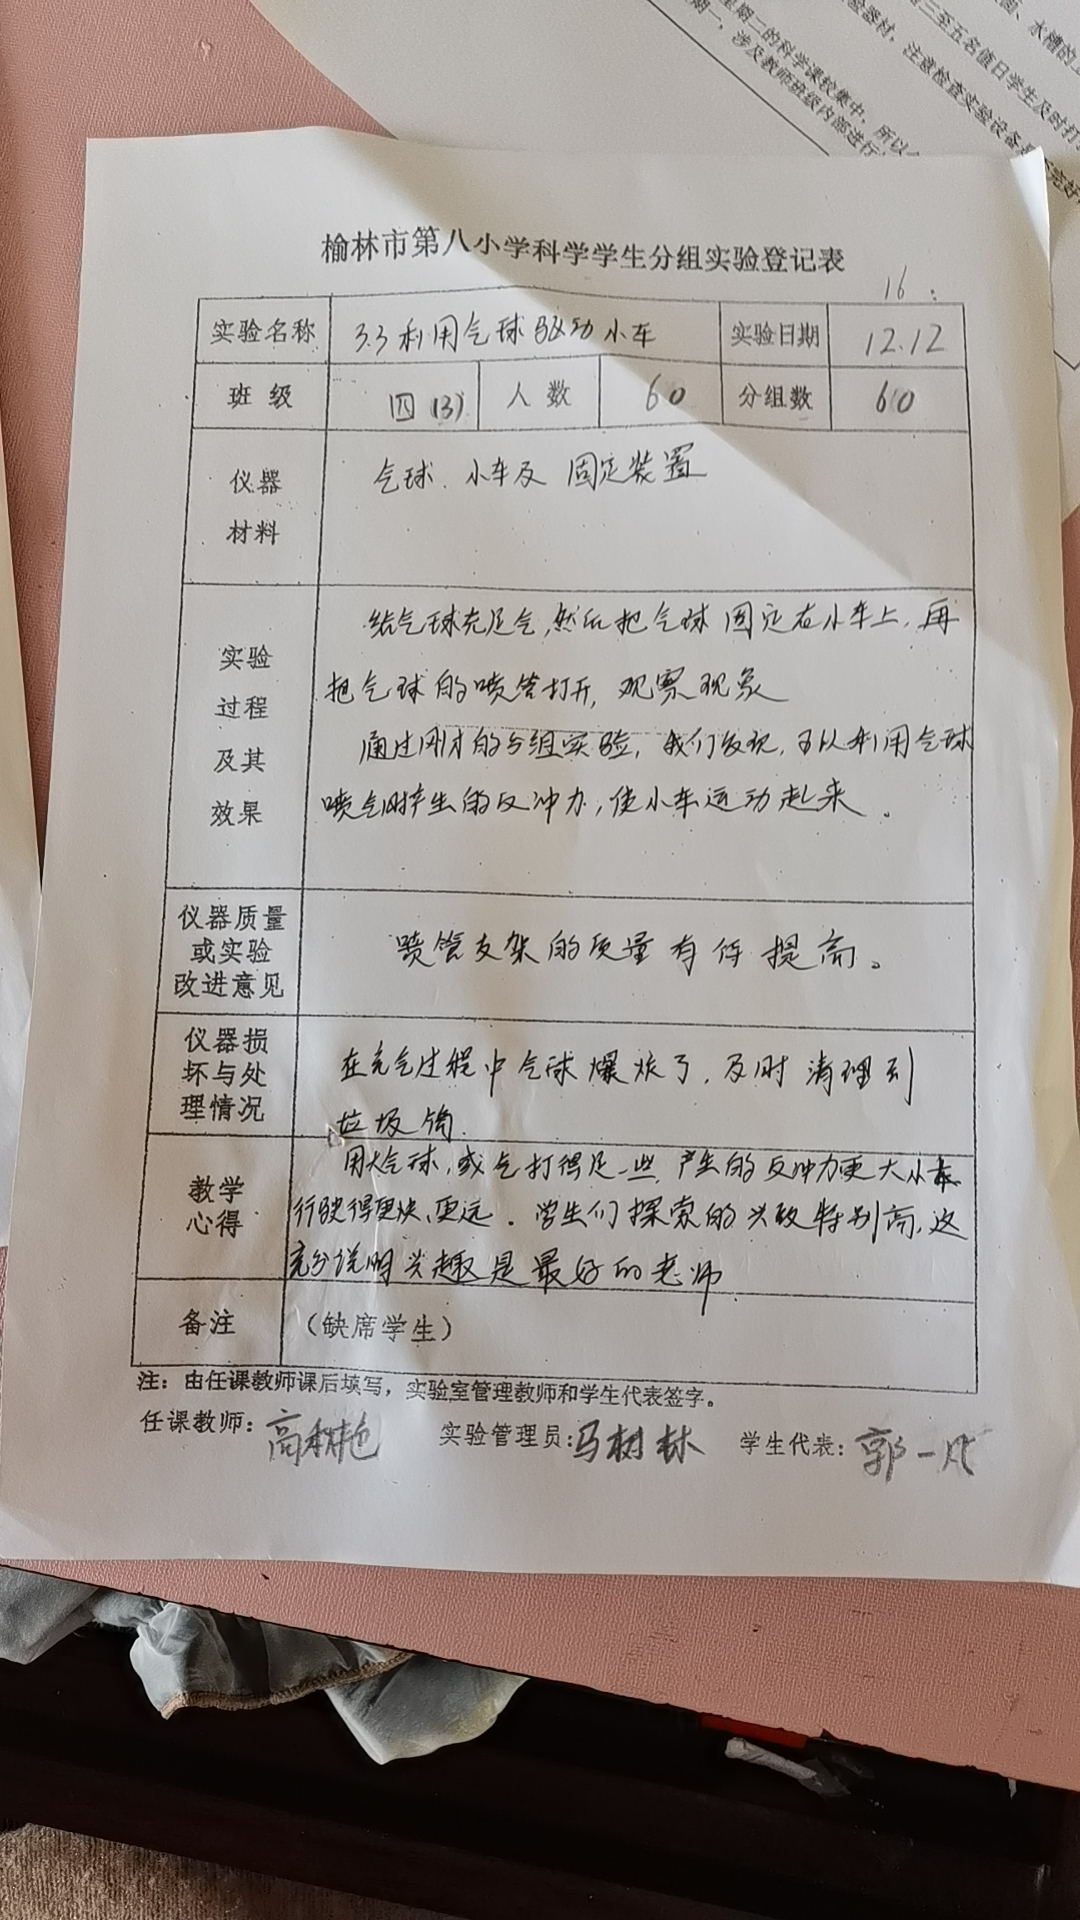 面、水槽的卫
三至五名值日学生及时打
验器材，注意检查实验设备是否完好
星期二的科学课较集中，所以
期一，涉及教师班级内部进行
榆林市第八小学科学学生分组实验登记表
16
实验名称 3.3利用气球驱动小车 实验日期 12.12
班 级 四(3) 人 数 60 分组数 60
仪器
材料
气球、小车及 固定装置
实验
过程
及其
效果
给气球充足气,然后把气球固定在小车上,再
把气球的喷管打开,观察现象
通过刚才的分组实验,我们发现,可以利用气球
喷气时产生的反冲力,使小车运动起来。
仪器质量
或实验
改进意见
喷管支架的质量有待提高。
仪器损
坏与处
理情况
在充气过程中气球爆炸了,及时清理到
垃圾筒.
教学
心得
用大气球,或气打得足一些,产生的反冲力更大小车
行驶得更快、更远。学生们探索的兴致特别高,这
充分说明兴趣是最好的老师
备注 （缺席学生）
注：由任课教师课后填写，实验室管理教师和学生代表签字。
任课教师：高 艳 实验管理员：马树林 学生代表：郭一凡